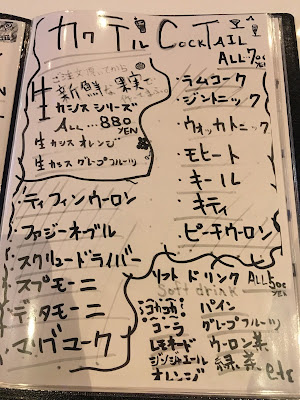 カクテル COCKTAIL
ALL 70
YEN
ご注文頂いてから
生 新鮮な果実で
カシスシリーズ
ALL...880
YEN
生カシスオレンジ
生カシスグレープフルーツ
・ラムコーク
・ジントニック
・ウォッカトニック
・モヒート
・キール
・キティ
・ピーチウーロン
・ティフィンウーロン
・ファジーネーブル
・スクリュードライバー
・スプモーニ
・ディタモーニ
・マリブコーク
ソフトドリンク ALL 50
YEN
Soft drink
コカコーラ
コーラ
レモネード
ジンジャエール
オレンジ
パイン
グレープフルーツ
ウーロン茶
緑茶
etc